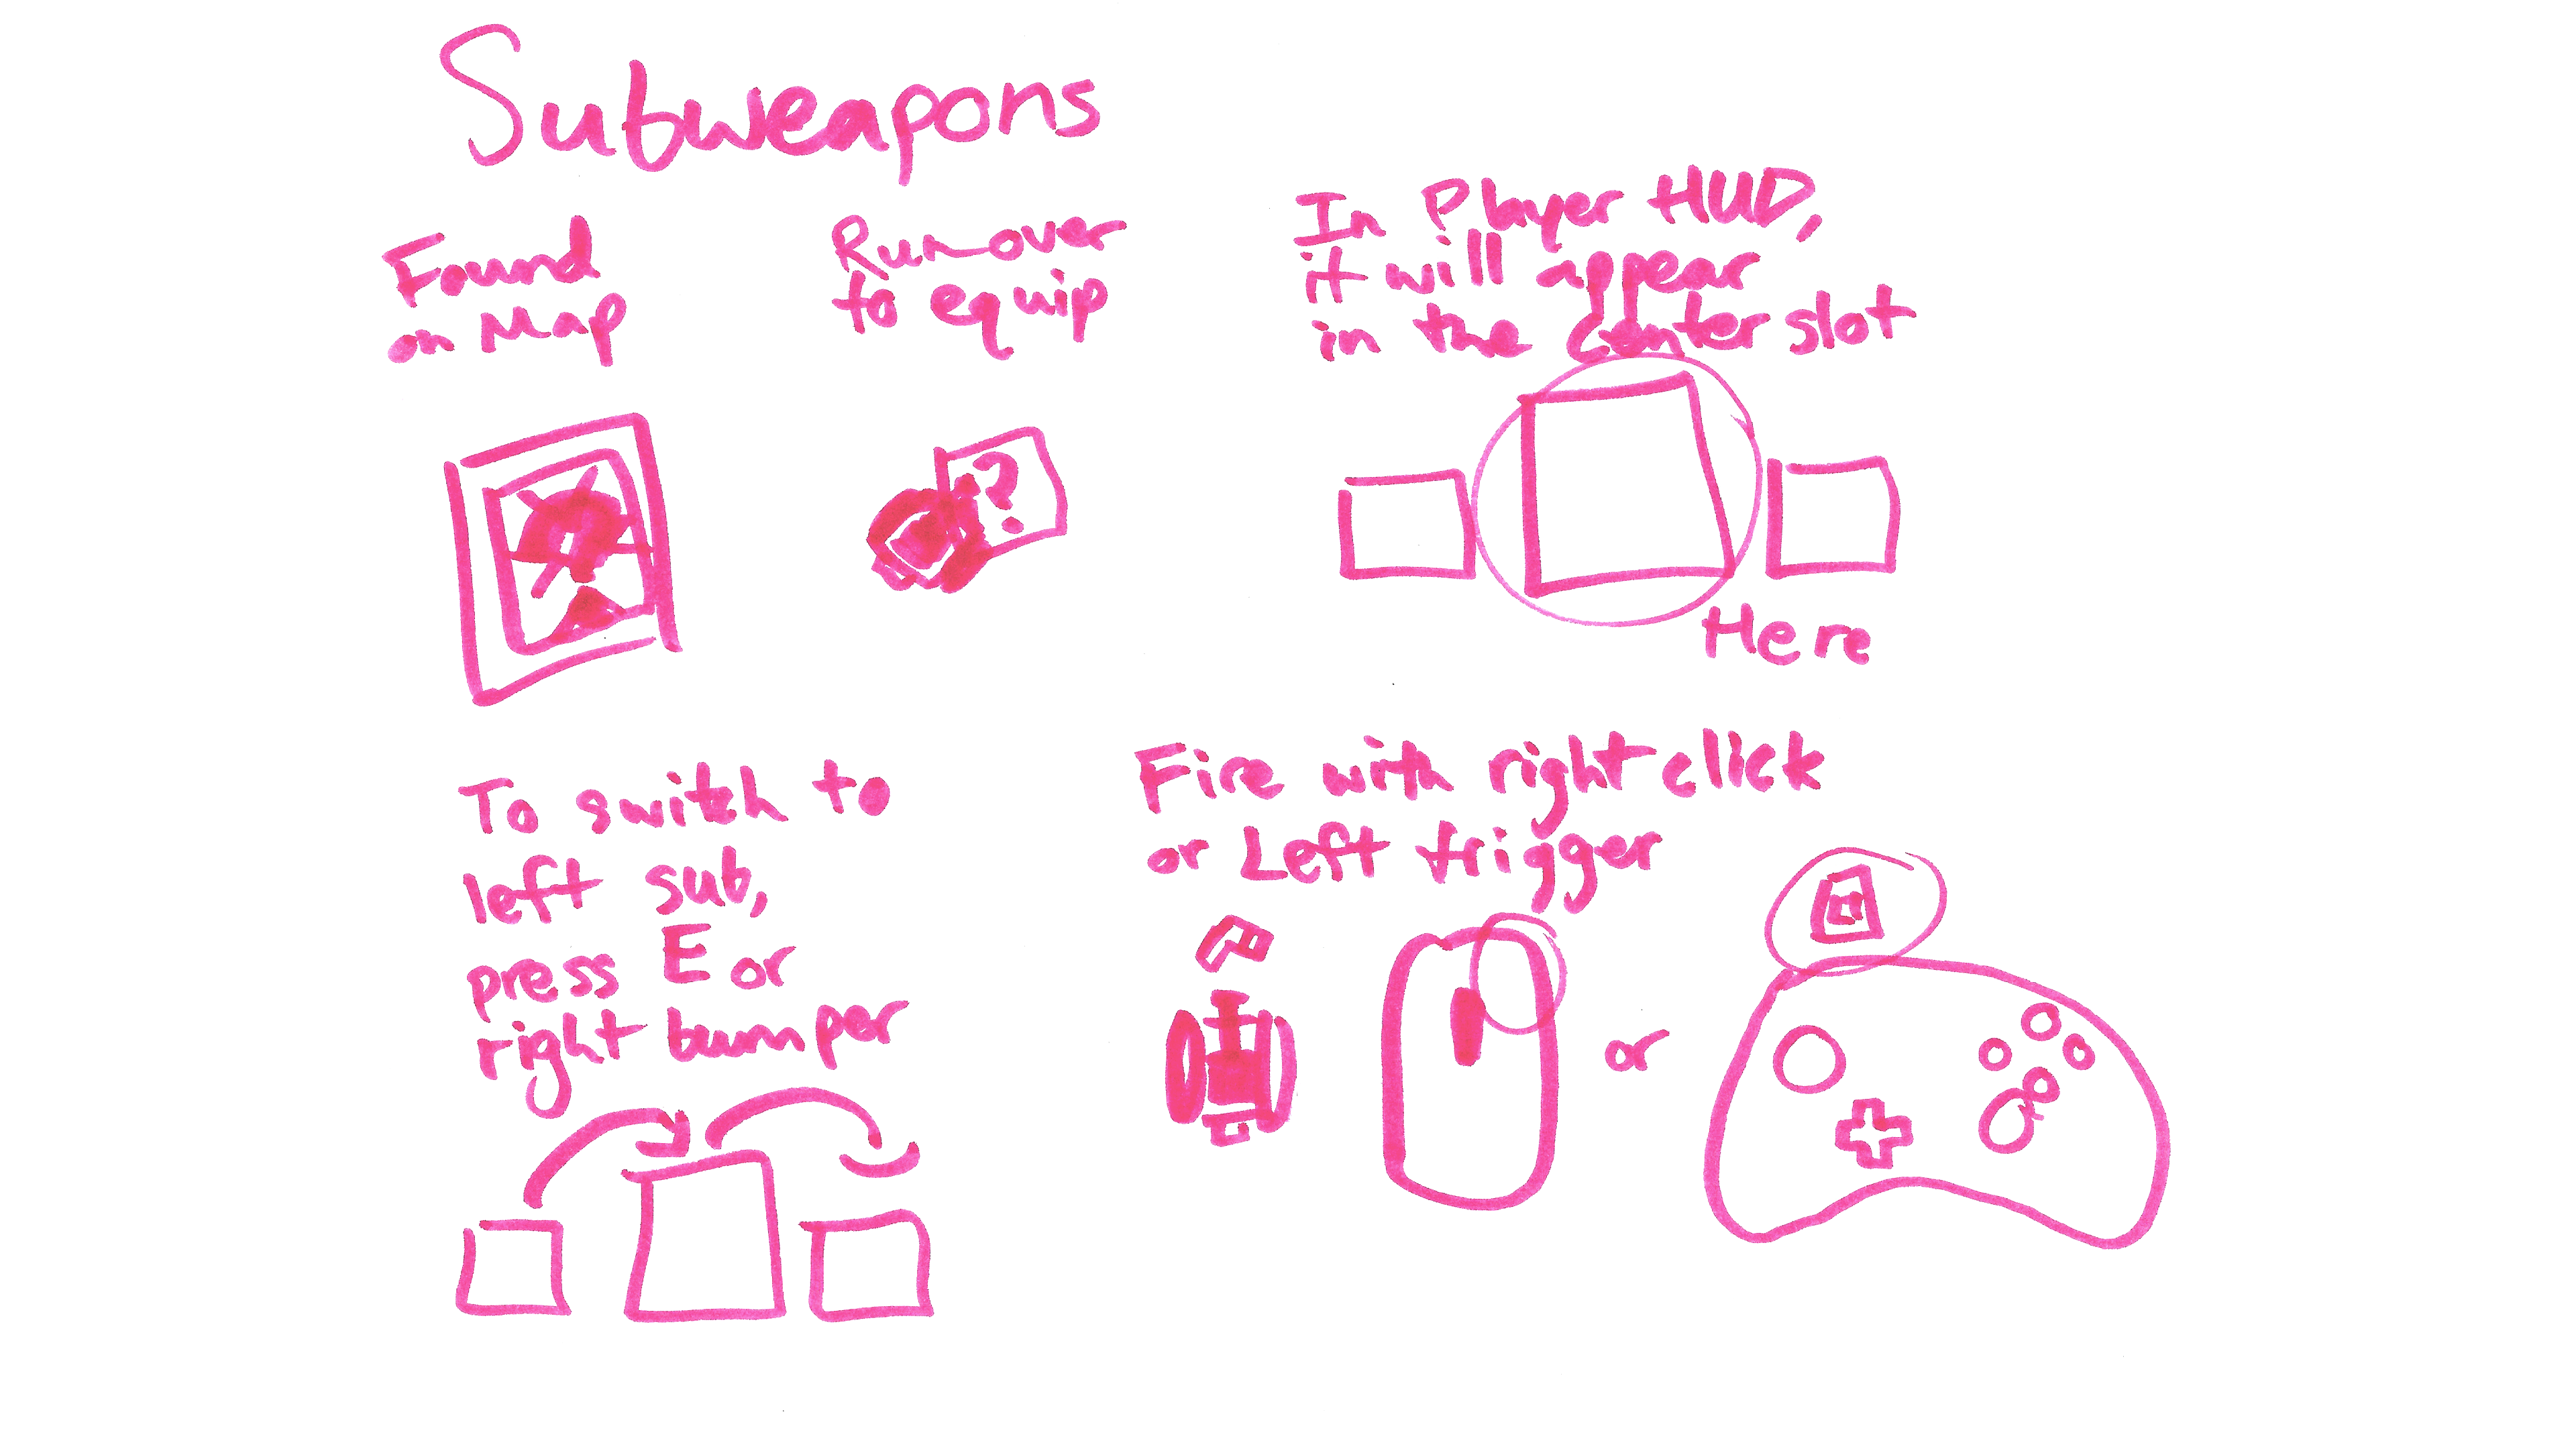 Subweapons
Found
on Map
Run over
to equip
?
In Player HUD,
it will appear
in the center slot
Here
To switch to
left sub,
press E or
right bumper
Fire with right click
or Left trigger
or